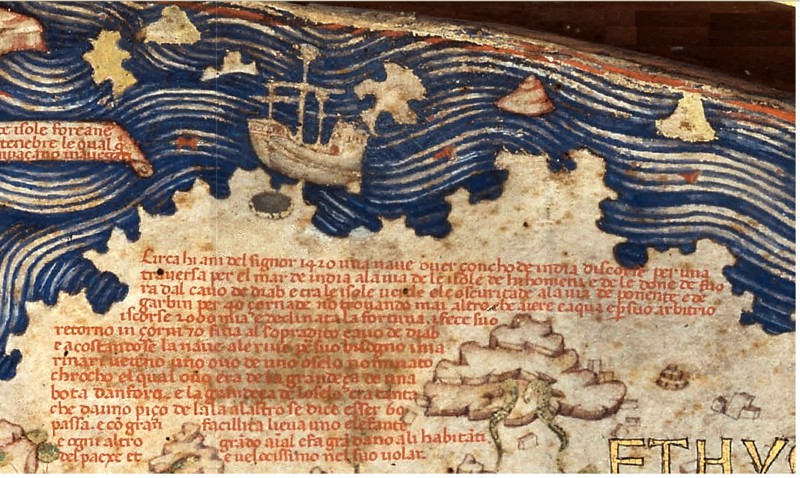 te isole foreane
tenebre le qual q
Circa hi ani del signor 1420 una naue ouer çoncho de india discorse per una
trauersa per el mar de india a la uia de le isole de hi homeni e de le done de fuo
ra dal cauo de diab e tra le isole uerde e le oscuritade a la uia de ponente e de
garbin per 40 çornade no trouando mai altro che aiere e aqua e p suo arbitrio
iscorse 2000 mia e declinata la fortuna i fece suo
retorno in çorni 70 fina al sopradito cauo de diab
e acostandose la naue a le riue p suo bisogno i ma
rinari uedeno uno ouo de uno oselo nominato
chrocho el qual ouo era de la grandeça de una
bota danfora e la grandeça de loselo era tanta
che da uno piço de lala a laltro se dice esser 60
passa e cō gran facilita lieua uno elefante
e ogni altro grādo aīal e fa grā dano a li habitāti
del paexe et e uelocissimo nel suo uolar.
ETHYO